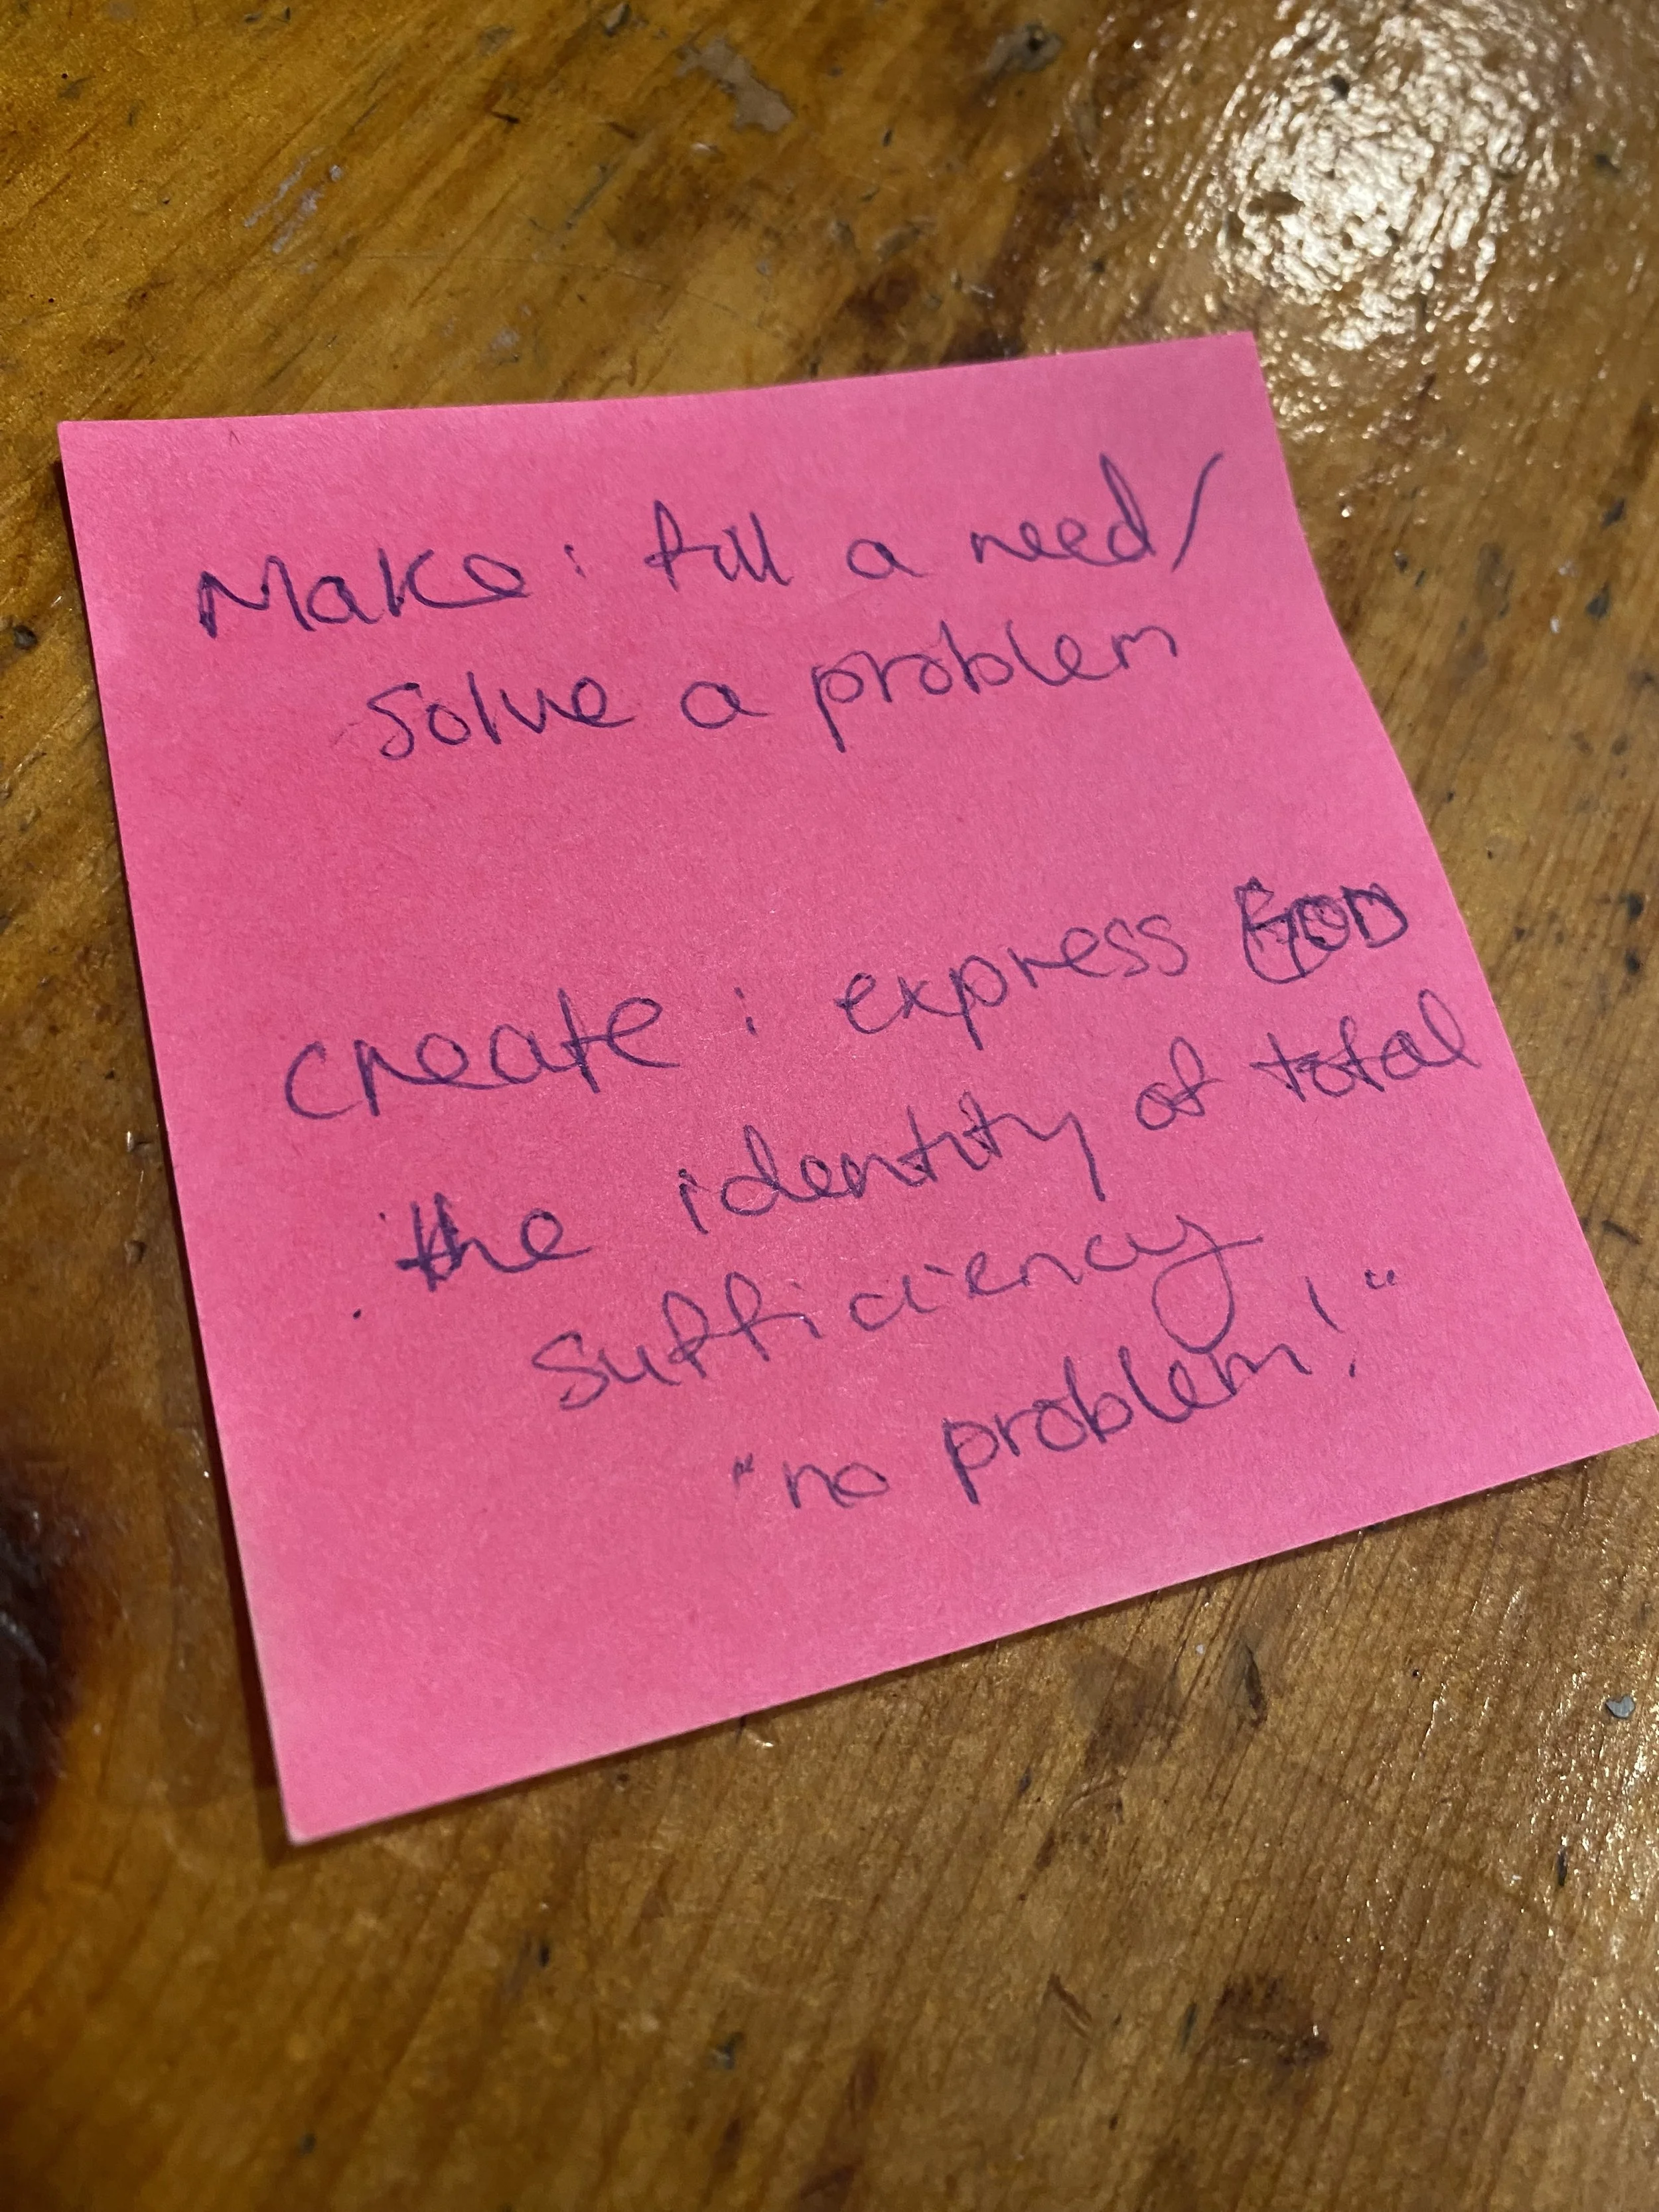 Make: fill a need/
solve a problem
create: express GOD
the identity of total
sufficiency
"no problem!"